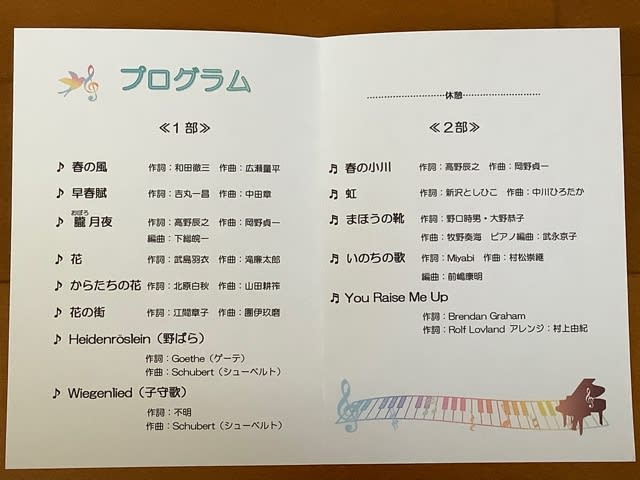 プログラム
≪１部≫
♪ 春の風 作詞：和田徹三 作曲：広瀬量平
♪ 早春賦 作詞：吉丸一昌 作曲：中田章
おぼろ
♪ 朧月夜 作詞：高野辰之 作曲：岡野貞一
編曲：下総皖一
♪ 花 作詞：武島羽衣 作曲：滝廉太郎
♪ からたちの花 作詞：北原白秋 作曲：山田耕筰
♪ 花の街 作詞：江間章子 作曲：團伊玖磨
♪ Heidenröslein（野ばら）
作詞：Goethe（ゲーテ）
作曲：Schubert（シューベルト）
♪ Wiegenlied（子守歌）
作詞：不明
作曲：Schubert（シューベルト）
………………………休憩………………………
≪２部≫
♬ 春の小川 作詞：高野辰之 作曲：岡野貞一
♬ 虹 作詞：新沢としひこ 作曲：中川ひろたか
♬ まほうの靴 作詞：野口時男・大野恭子
作曲：牧野奏海 ピアノ編曲：武永京子
♬ いのちの歌 作詞：Miyabi 作曲：村松崇継
編曲：前嶋康明
♬ You Raise Me Up
作詞：Brendan Graham
作曲：Rolf Lovland アレンジ：村上由紀